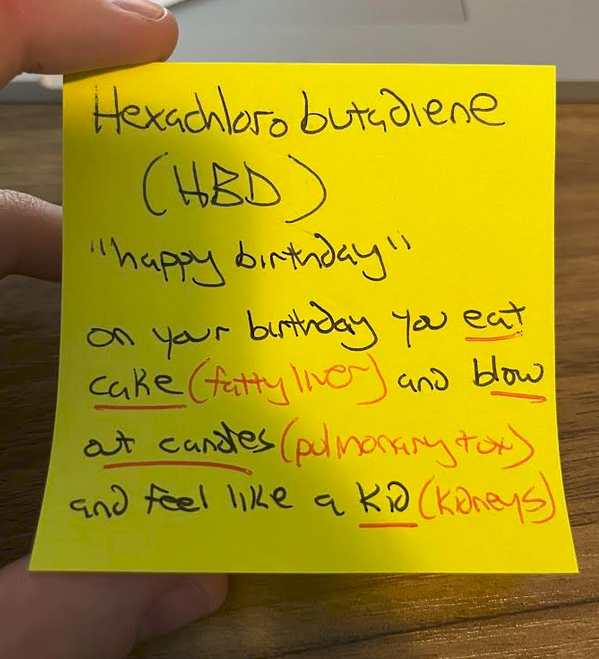 Hexachlorobutadiene
(HBD)
"happy birthday"
on your birthday you eat
cake (fatty liver) and blow
out candles (pulmonary tox)
and feel like a kid (kidneys)